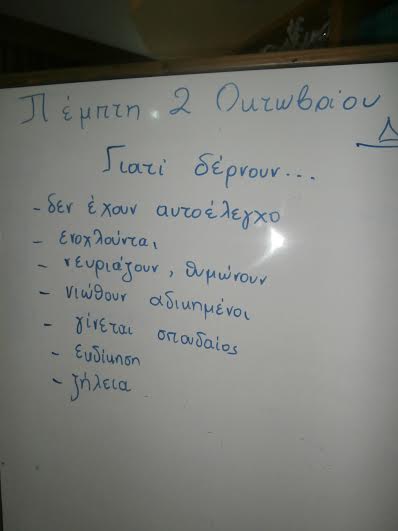 Πέμπτη 2 Οκτωβρίου
Δ
Γιατί δέρνουν...
- δεν έχουν αυτοέλεγχο
- ενοχλούνται
- νευριάζουν, θυμώνουν
- νιώθουν αδικημένοι
- γίνεται σπουδαίος
- ευδίκηση
- ζήλεια